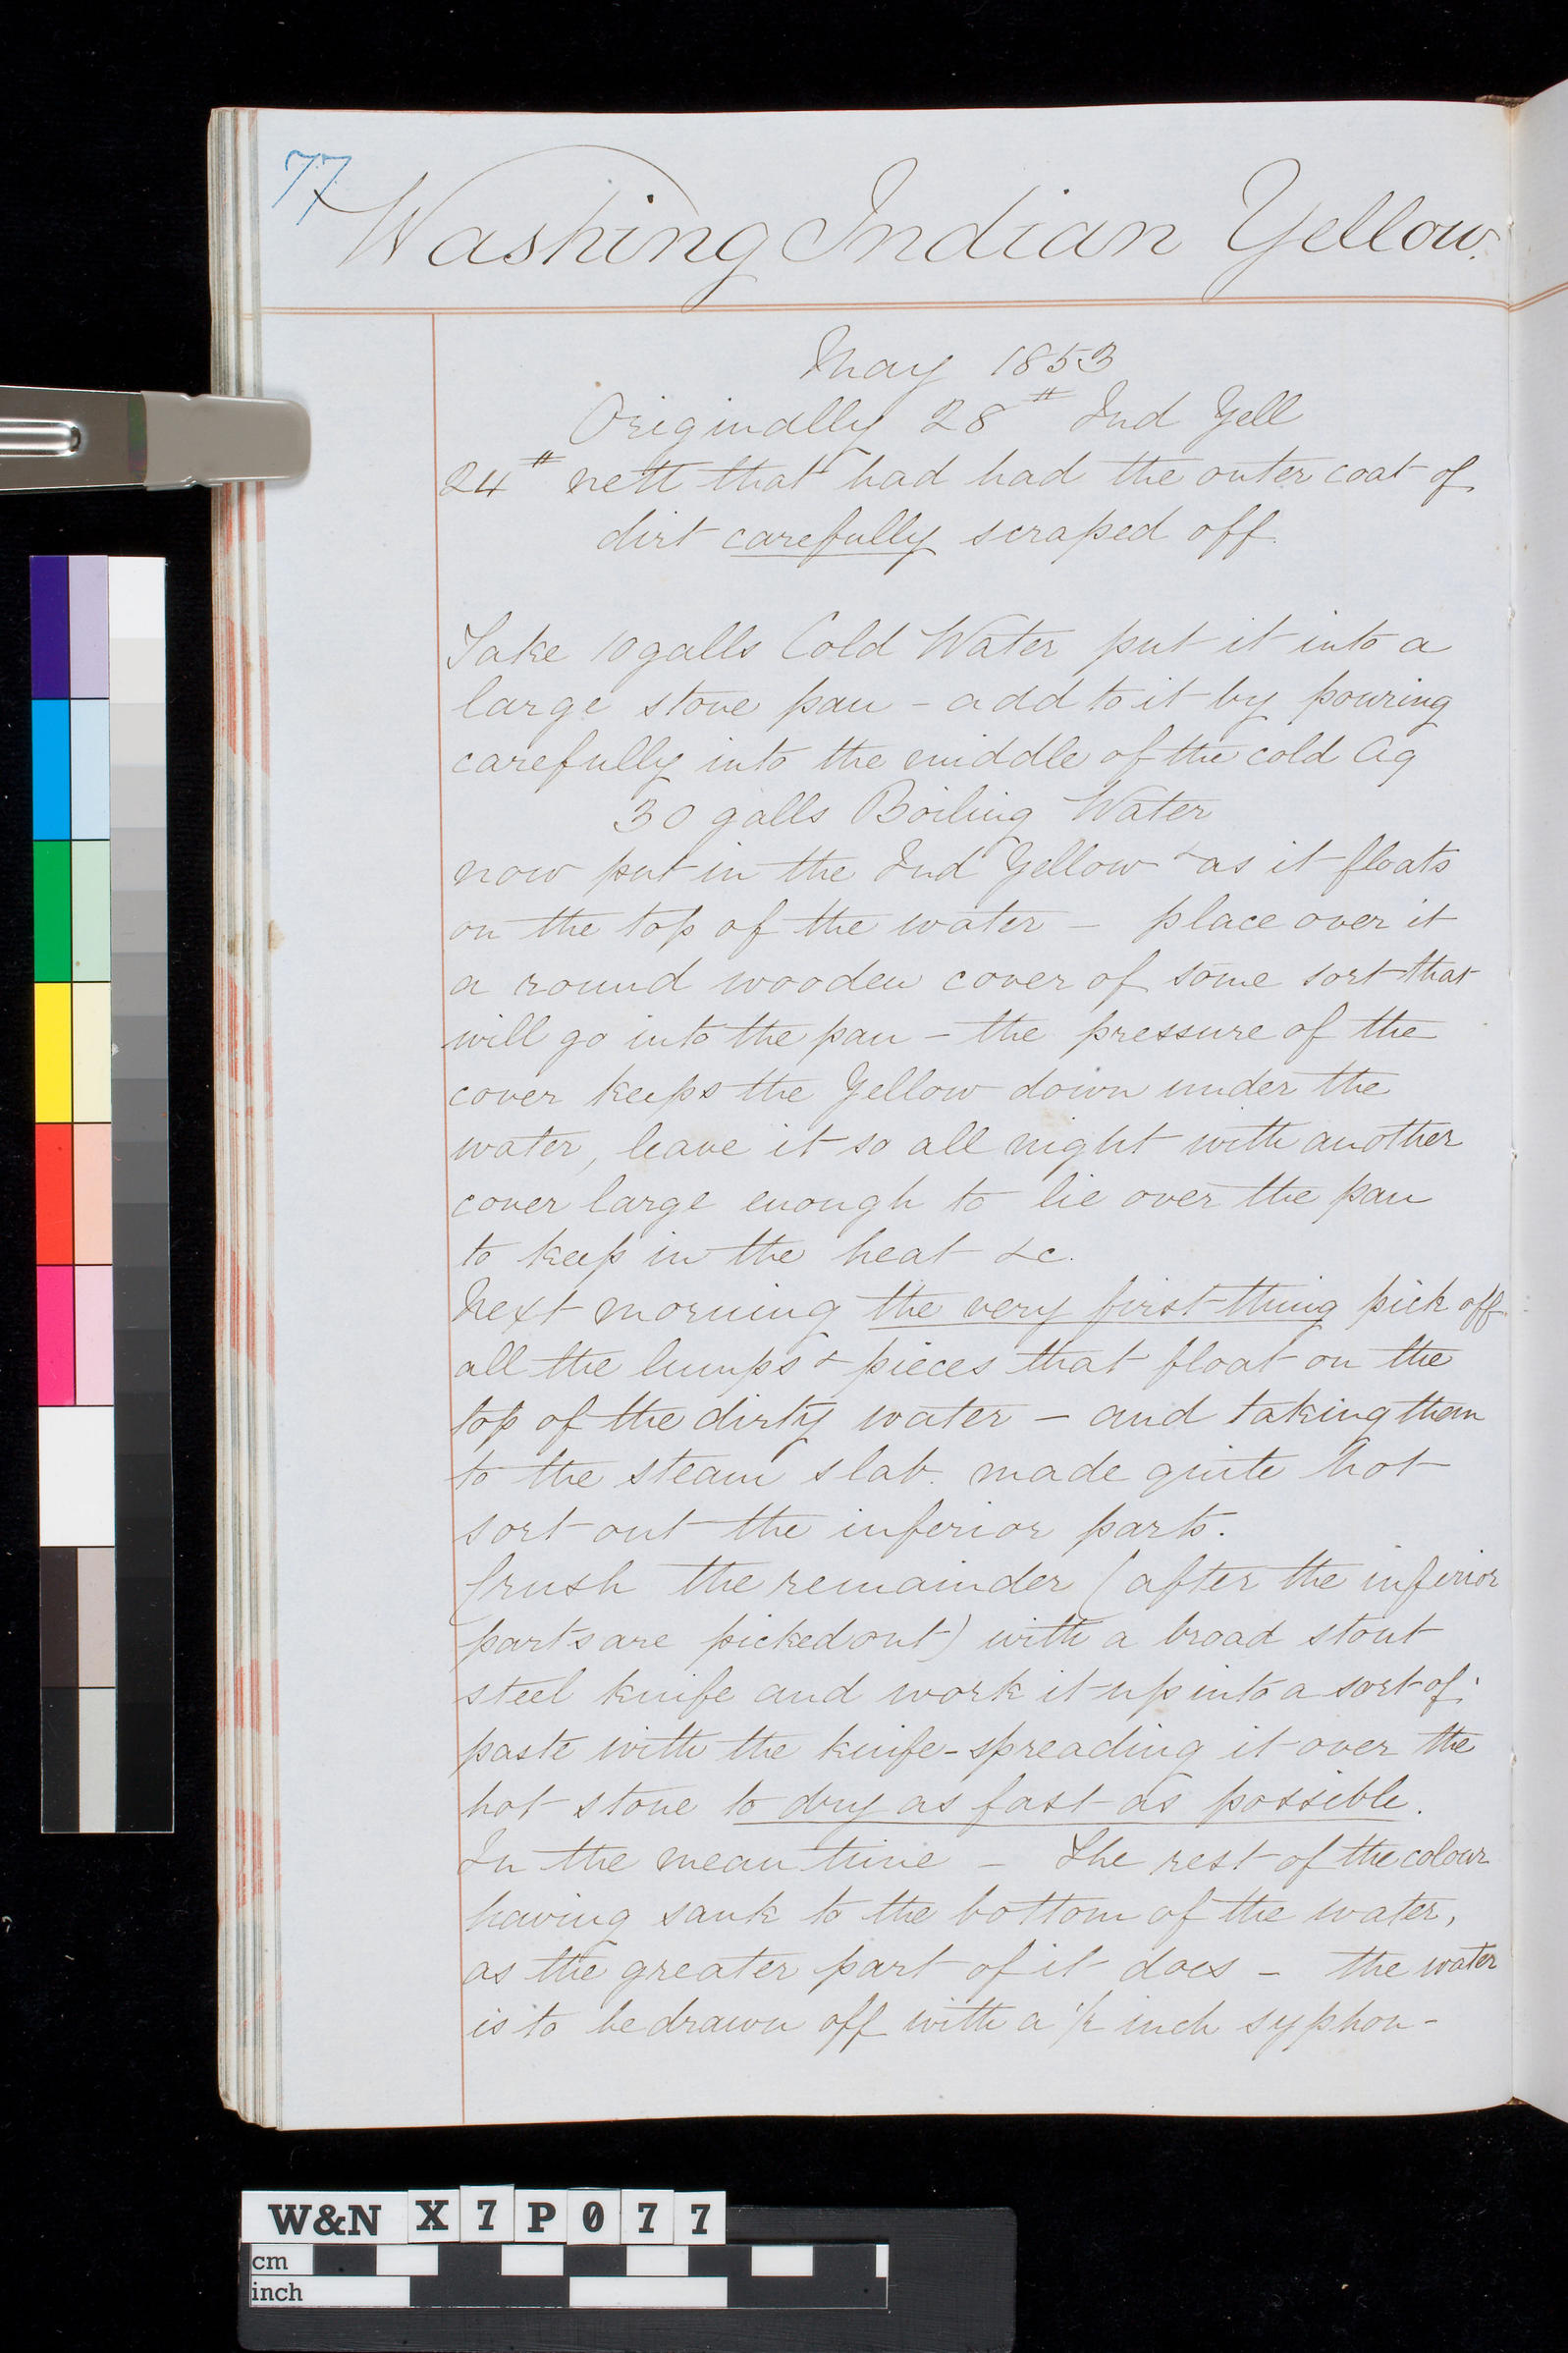 77
Washing Indian Yellow.
May 1853
Originally 28 # Ind Yell
24 # nett that had had the outer coat of
dirt carefully scraped off.
Take 10 galls Cold Water put it into a
large stone pan - add to it by pouring
carefully into the middle of the cold Aq
30 galls Boiling Water
now put in the Ind Yellow & as it floats
on the top of the water - place over it
a round wooden cover of some sort that
will go into the pan - the pressure of the
cover keeps the Yellow down under the
water, leave it so all night with another
cover large enough to lie over the pan
to keep in the heat &c.
Next morning the very first thing pick off
all the lumps & pieces that float on the
top of the dirty water - and taking them
to the steam slab. made quite hot
sort out the inferior parts.
Crush the remainder (after the inferior
parts are picked out) with a broad stout
steel knife and work it up into a sort of
paste with the knife - spreading it over the
hot stone to dry as fast as possible.
In the mean time - The rest of the colour
having sank to the bottom of the water,
as the greater part of it does - the water
is to be drawn off with a ½ inch syphon -
W&N X7P077
cm
inch